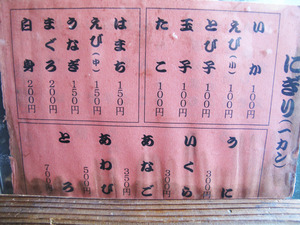 にぎり（一カン）
いか 100円
えび（小） 100円
とび子 100円
玉子 100円
たこ 100円
はまち 150円
えび（中） 150円
うなぎ 150円
まぐろ 200円
白身 200円
うに
いくら 300円
あなご 350円
あわび 500円
とろ 700円